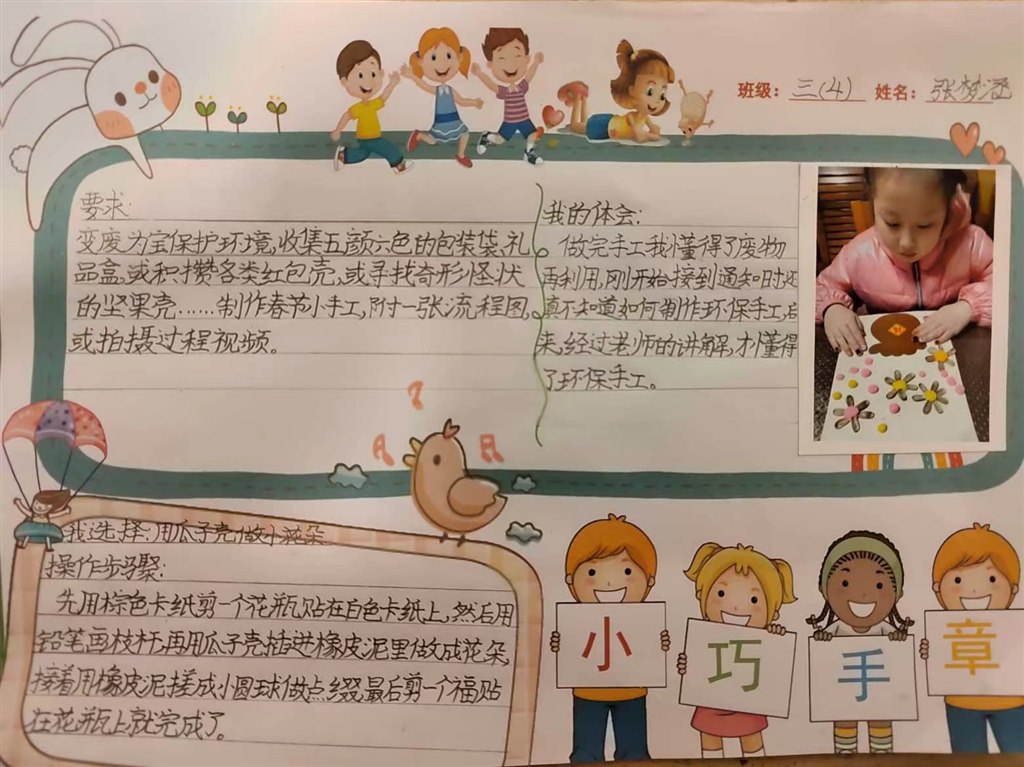 班级：三(4) 姓名：张梦涵
要求：
变废为宝保护环境，收集五颜六色的包装袋、礼
品盒，或积攒各类红包壳，或寻找奇形怪状
的坚果壳……制作春节小手工，附一张流程图，
或拍摄过程视频。
我的体会：
做完手工我懂得了废物
再利用，刚开始接到通知时还
真不知道如何制作环保手工，后
来，经过老师的讲解，才懂得
了环保手工。
我选择：用瓜子壳做小花朵
操作步骤：
先用棕色卡纸剪一个花瓶贴在白色卡纸上，然后用
铅笔画枝杆，再用瓜子壳插进橡皮泥里做成花朵，
接着用橡皮泥搓成小圆球做点缀，最后剪一个福贴
在花瓶上就完成了。
小巧手章